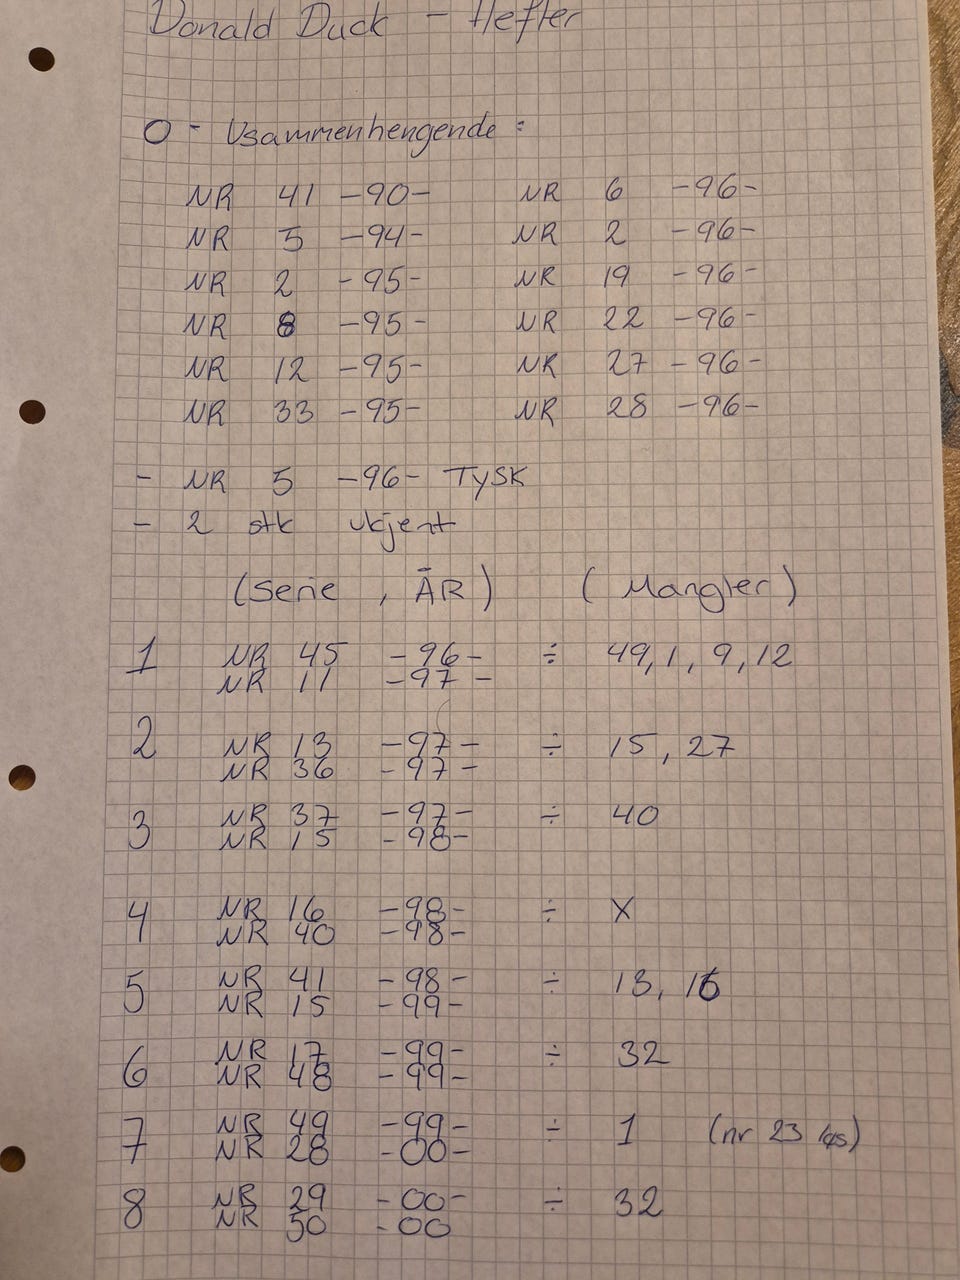 Donald Duck - Hefter
0 - Usammenhengende :
NR 41 -90- NR 6 -96-
NR 5 -94- NR 2 -96-
NR 2 -95- NR 19 -96-
NR 8 -95- NR 22 -96-
NR 12 -95- NR 27 -96-
NR 33 -95- NR 28 -96-
- NR 5 -96- TYSK
- 2 stk ukjent
(Serie , ÅR) (Mangler)
1 NR 45 -96- ÷ 49, 1, 9, 12
NR 11 -97-
2 NR 13 -97- ÷ 15, 27
NR 36 -97-
3 NR 37 -97- ÷ 40
NR 15 -98-
4 NR 16 -98- ÷ X
NR 40 -98-
5 NR 41 -98- ÷ 13, 16
NR 15 -99-
6 NR 17 -99- ÷ 32
NR 48 -99-
7 NR 49 -99- ÷ 1 (nr 23 løs)
NR 28 -00-
8 NR 29 -00- ÷ 32
NR 50 -00